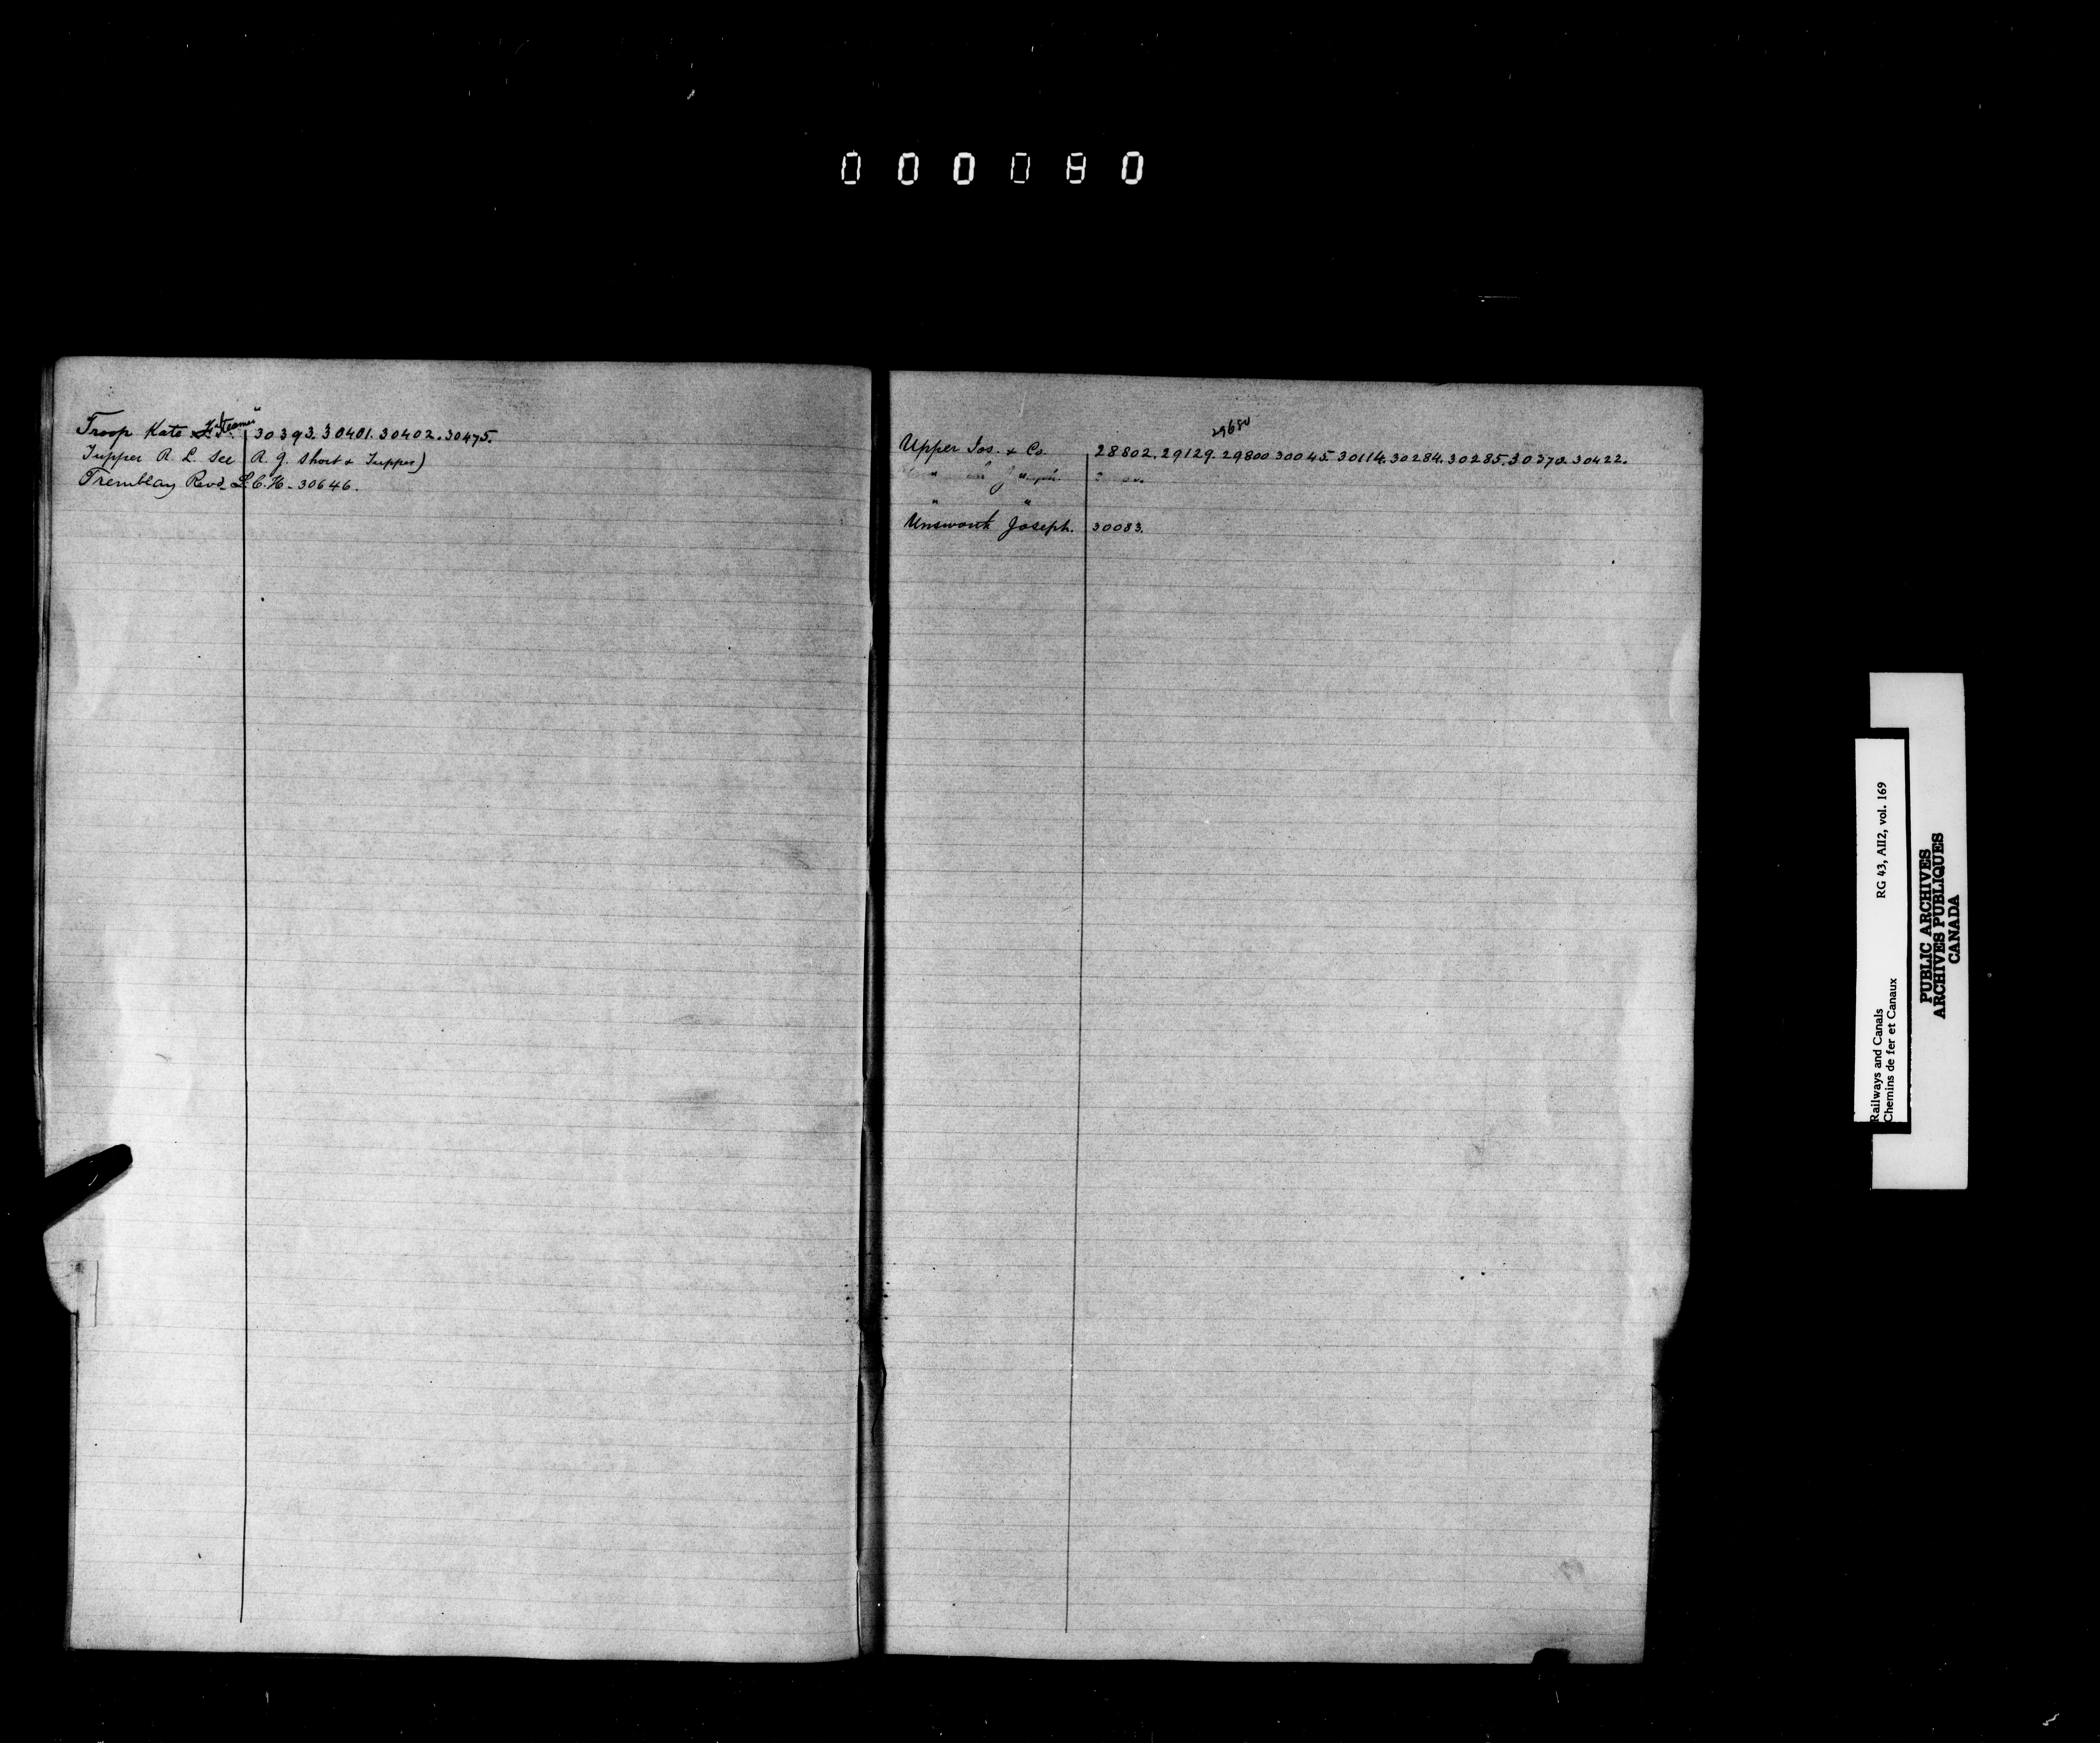 000080
Troop Kate "Steamer" 30393. 30401. 30402. 30475.
Tupper R. L. See R. G. Short & Tupper)
Tremblay Revd L. C. H. - 30646.
29680
Upper Jos. & Co. 28802. 29129. 29800 30045. 30114. 30284. 30285. 30370. 30422.
" "
Unsworth Joseph. 30083.
Railways and Canals RG 43, AII2, vol. 169
Chemins de fer et Canaux
PUBLIC ARCHIVES
ARCHIVES PUBLIQUES
CANADA